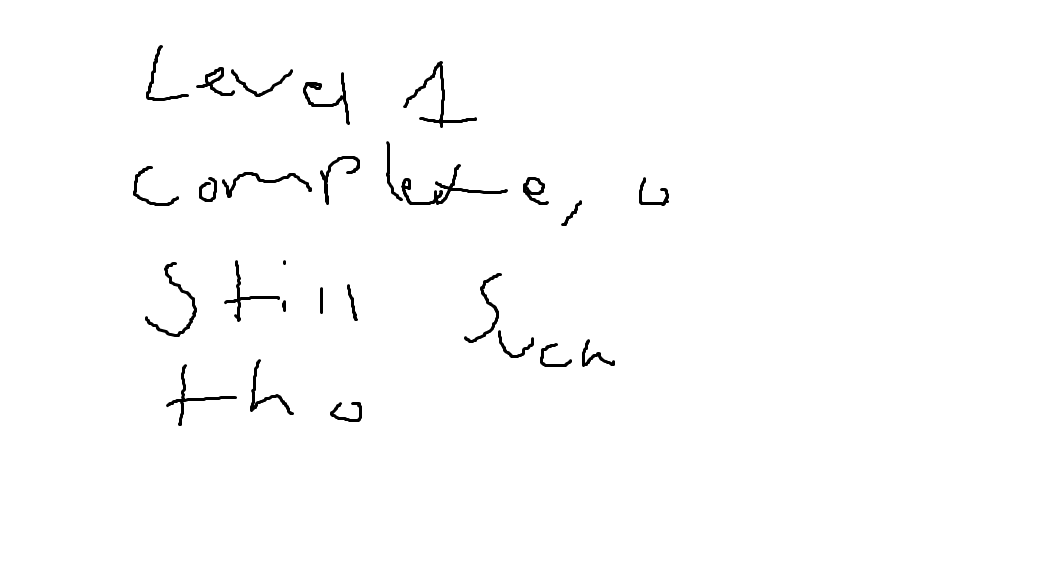 Level 1
complete, u
still such
tho